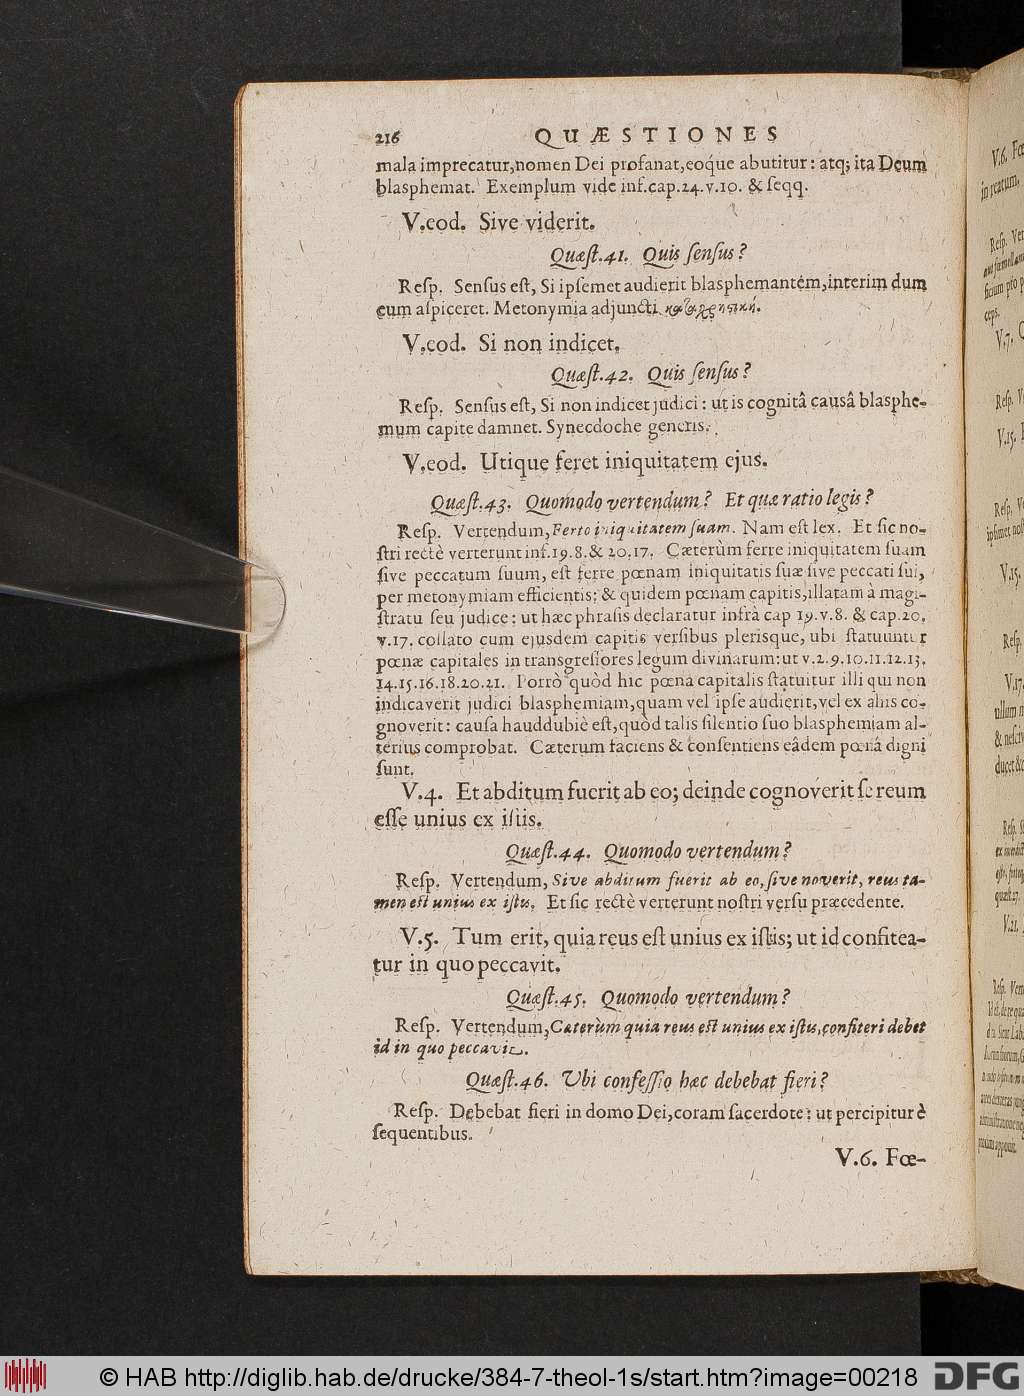 216 QUÆSTIONES
mala imprecatur, nomen Dei profanat, eoque abutitur: atq; ita Deum
blasphemat. Exemplum vide inf. cap. 24. v. 10. & seqq.
V. eod. Sive viderit.
Quæst. 41. Quis sensus?
Resp. Sensus est, Si ipsemet audierit blasphemantem, interim dum
eum aspiceret. Metonymia adjuncti καταχρηστική.
V. eod. Si non indicet.
Quæst. 42. Quis sensus?
Resp. Sensus est, Si non indicet judici: ut is cognitâ causâ blasphe-
mum capite damnet. Synecdoche generis.
V. eod. Utique feret iniquitatem ejus.
Quæst. 43. Quomodo vertendum? Et quæ ratio legis?
Resp. Vertendum, Ferto iniquitatem suam. Nam est lex. Et sic no-
stri rectè verterunt inf. 19. 8. & 20. 17. Cæterùm ferre iniquitatem suam
sive peccatum suum, est ferre pœnam iniquitatis suæ sive peccati sui,
per metonymiam efficientis: & quidem pœnam capitis, illatam à magi-
stratu seu judice: ut hæc phrasis declaratur infrà cap 19. v. 8. & cap. 20.
v. 17. collato cum ejusdem capitis versibus plerisque, ubi statuuntur
pœnæ capitales in transgressores legum divinarum: ut v. 2. 9. 10. 11. 12. 13.
14. 15. 16. 18. 20. 21. Porrò quòd hic pœna capitalis statuitur illi qui non
indicaverit judici blasphemiam, quam vel ipse audierit, vel ex aliis co-
gnoverit: causa hauddubiè est, quòd talis silentio suo blasphemiam al-
terius comprobat. Cæterum faciens & consentiens eâdem pœnâ digni
sunt.
V. 4. Et abditum fuerit ab eo; deinde cognoverit se reum
esse unius ex istis.
Quæst. 44. Quomodo vertendum?
Resp. Vertendum, Sive abditum fuerit ab eo, sive noverit, reus ta-
men est unius ex istis. Et sic rectè verterunt nostri versu præcedente.
V. 5. Tum erit, quia reus est unius ex istis; ut id confitea-
tur in quo peccavit.
Quæst. 45. Quomodo vertendum?
Resp. Vertendum, Cæterùm quia reus est unius ex istis, confiteri debet
id in quo peccavit.
Quæst. 46. Ubi confessio hæc debebat fieri?
Resp. Debebat fieri in domo Dei, coram sacerdote: ut percipitur è
sequentibus.
V. 6. Fœ-
© HAB http://diglib.hab.de/drucke/384-7-theol-1s/start.htm?image=00218
DFG